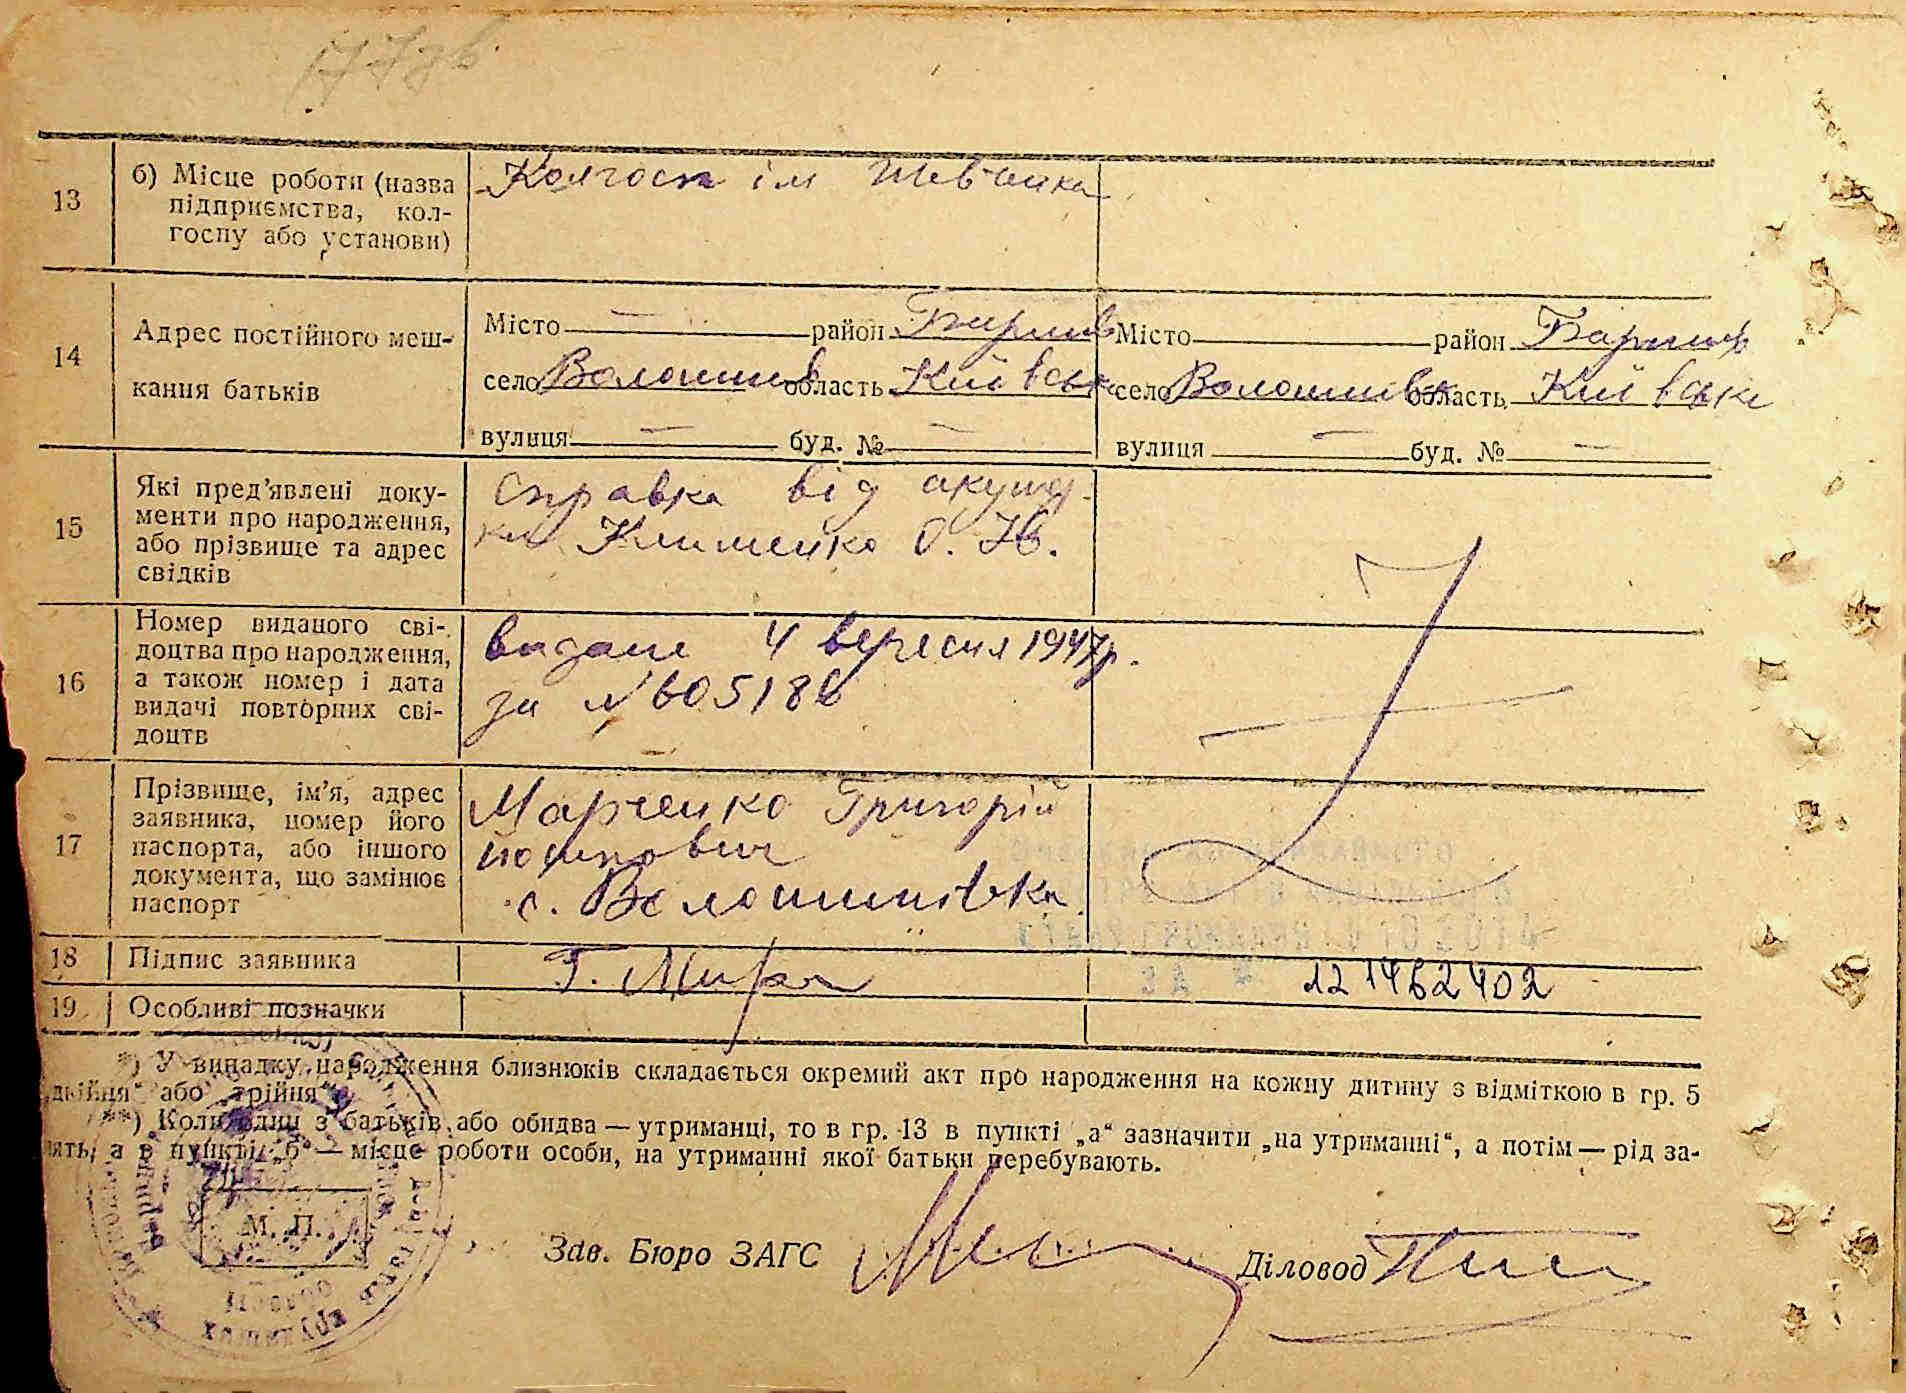 177зв
13 б) Місце роботи (назва підприємства, кол-госпу або установи)
Колгосп ім Шевченка
14 Адрес постійного меш-
кання батьків
Місто — район Баришів
село Волошинів область Київськ
вулиця — буд. № —
Місто район Баришів
село Волошинівка область Київська
вулиця — буд. № —
15 Які пред’явлені доку-
менти про народження,
або прізвище та адрес
свідків
Справка від акушер-
ки Клименко О. Ів.
16 Номер виданого сві-
доцтва про народження,
а також номер і дата
видачі повторних сві-
доцтв
видане 4 вересня 1947р.
за №
17 Прізвище, ім’я, адрес
заявника, номер його
паспорта, або іншого
документа, що замінює
паспорт
Марченко Григорій
Йосипович
с. Волошинівка
18 Підпис заявника
Г. Марч
121462402
19 Особливі позначки
*) У випадку народження близнюків складається окремий акт про народження на кожну дитину з відміткою в гр. 5
„двійня“ або „трійня“
**) Коли один з батьків або обидва — утриманці, то в гр. 13 в пункті „а“ зазначити „на утриманні“, а потім — рід за-
нять, а в пункті „б“ — місце роботи особи, на утриманні якої батьки перебувають.
М. П.
Зав. Бюро ЗАГС
Діловод